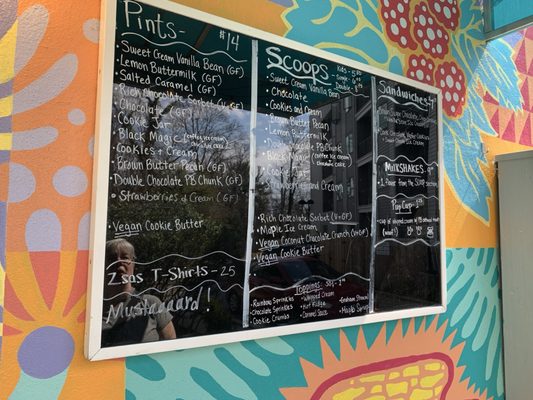 Pints - $14
· Sweet Cream Vanilla Bean (GF)
· Lemon Buttermilk (GF)
· Salted Caramel (GF)
· Rich Chocolate Sorbet (V+GF)
· Chocolate (GF)
· Cookie Jar
· Black Magic (coffee ice cream
chocolate cake)
· Cookies + Cream
· Brown Butter Pecan (GF)
· Double Chocolate PB Chunk (GF)
· Strawberries & Cream (GF)
· Vegan Cookie Butter
Zsas T-Shirts - 25
Mustaaaard!
Scoops -
Kids
Single
Double
· Sweet Cream Vanilla Bean
· Chocolate
· Cookies and Cream
· Brown Butter Pecan
· Lemon Buttermilk
· Double Chocolate PB Chunk
· Black Magic (coffee ice cream
· Cookie Jar
· Strawberries and Cream
· Rich Chocolate Sorbet (V+GF)
· Maple Ice Cream
· Vegan Coconut Chocolate Crunch (V+GF)
· Vegan Cookie Butter
Toppings:
· Rainbow Sprinkles
· Chocolate Sprinkles
· Cookie Crumbs
· Whipped Cream
· Hot Fudge
· Caramel Sauce
· Graham
· Maple Syrup
Sandwiches -
MILKSHAKES
1 flavor from the Scoop section
Pup Cup